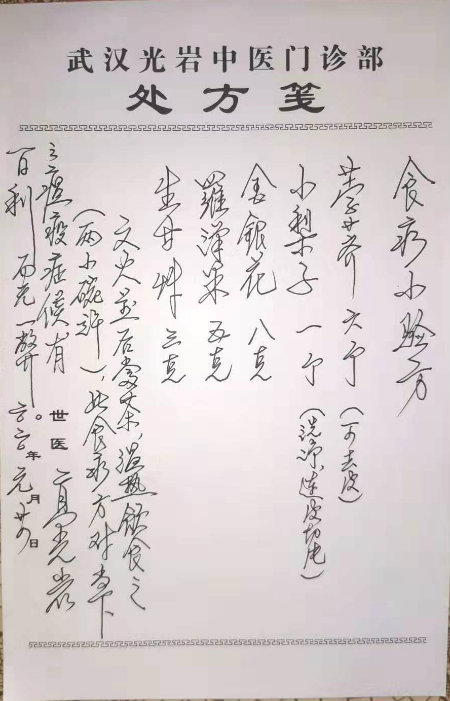 武汉光岩中医门诊部
处方笺
食疗小验方
荸荠 六个 (可去皮)
小梨子 一个 (洗净,连皮切片)
金银花 八克
羅漢果 五克
生甘草 三克
文火煎后當茶,温热飲食之
(两小碗許),此食疗方对当下
之瘟疫症候有
百利而无一弊。
世医 高光岩
二〇二〇年元月廿四日